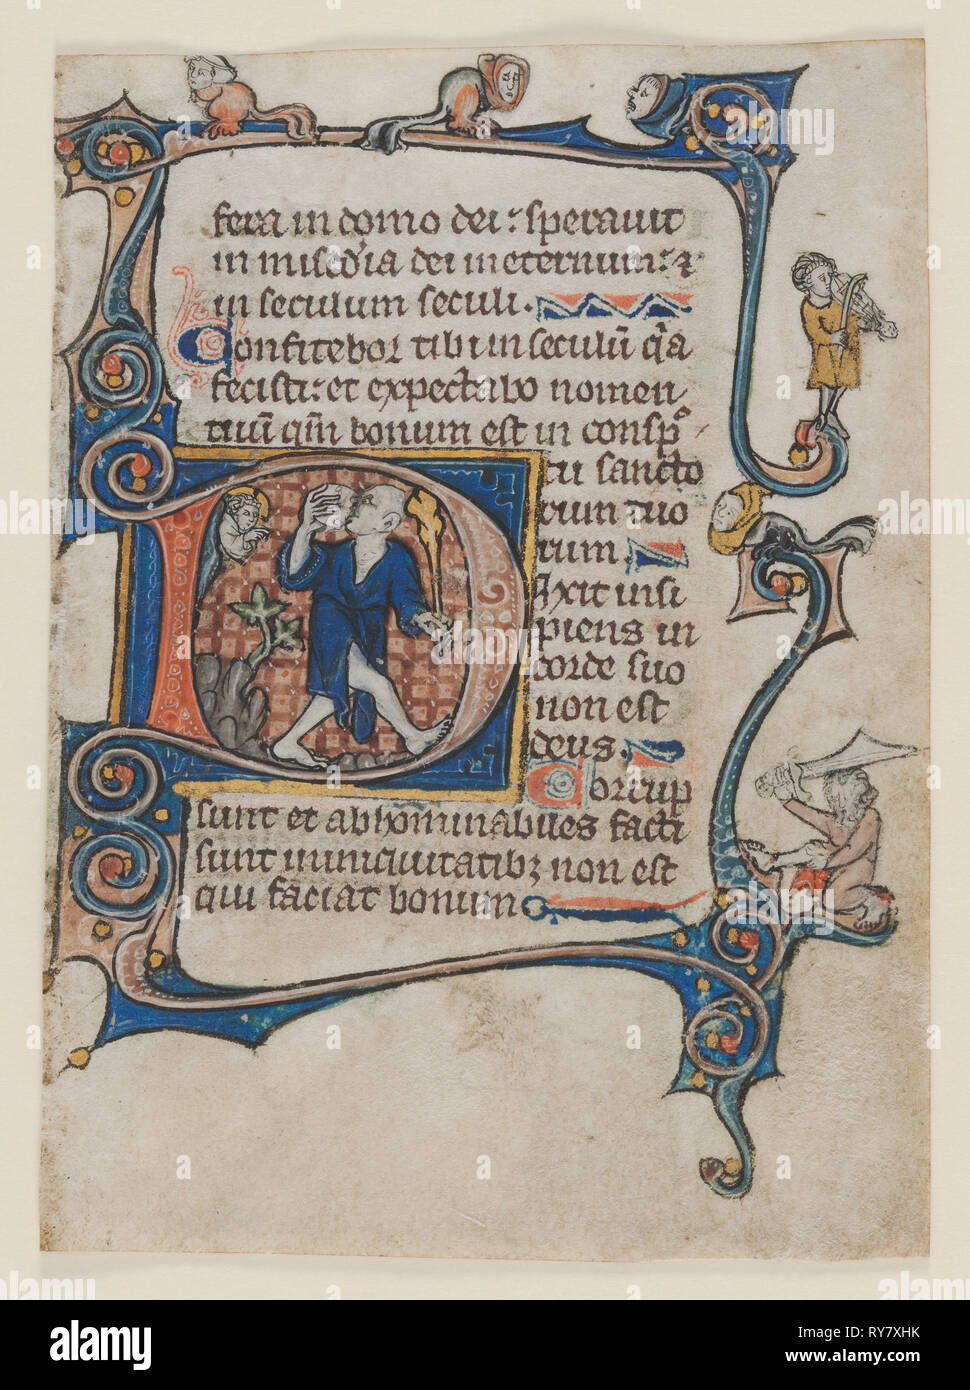 fera in domo dei: speravit
in mis̄c̄dia dei in eternum: ⁊
in seculum seculi.
Confitebor tibi in seculū q̄a
fecisti: et expectabo nomen
tuū qm̄ bonum est in consp̄
tu sancto
rum tuo
rum.
Dixit insi
piens in
corde suo
non est
deus.
Corrup
sunt et abhominabiles facti
sunt in iniquitatibꝫ non est
qui faciat bonum
alamy
Image ID: RY7XHK
www.alamy.com